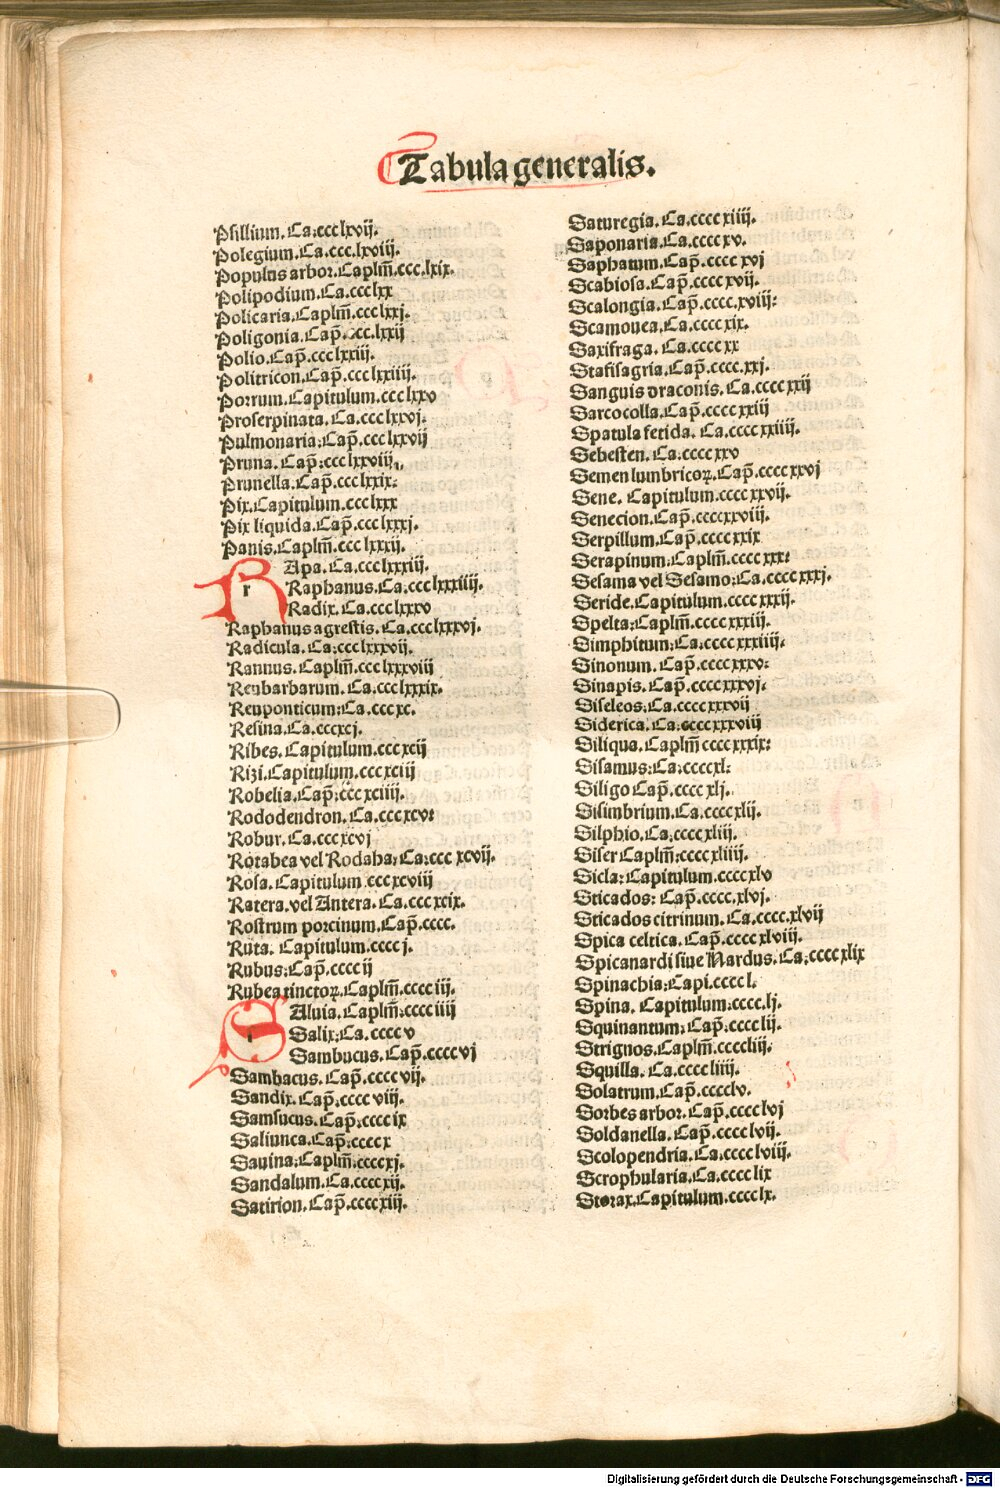 Tabula generalis.
Psillium. Ca. ccc lxvij.
Polegium. Ca. ccc. lxviij.
Populus arbor. Caplm̄. ccc. lxix.
Polipodium. Ca. ccc lxx
Policaria. Caplm̄. ccc lxxj.
Poligonia. Cap̄. .cc. lxxij
Polio. Cap̄. ccc lxxiij.
Politricon. Cap̄. ccc lxxiiij.
Porrum. Capitulum. ccc lxxv
Proserpinata. Ca. ccc lxxvj.
Pulmonaria: Cap̄. ccc lxxvij
Pruna. Cap̄: ccc lxxviij.
Prunella. Cap̄. ccc lxxix:
Pix. Capitulum. ccc lxxx
Pix liquida. Cap̄. ccc lxxxj.
Panis. Caplm̄. ccc lxxxij.
r Apa. Ca. ccc lxxxiij.
Raphanus. Ca. ccc lxxxiiij.
Radix. Ca. ccc lxxxv
Raphanus agrestis. Ca. ccc lxxxvj.
Radicula. Ca: ccc lxxxvij.
Rannus. Caplm̄. ccc lxxxviij
Reubarbarum. Ca. ccc lxxxix.
Reuponticum: Ca. ccc xc.
Resina. Ca. cccxcj.
Ribes. Capitulum. ccc xcij
Rizi. Capitulum. ccc xciij
Robelia. Cap̄: ccc xciiij.
Rododendron. Ca. ccc xcv:
Robur. Ca. ccc xcvj
Rotabea vel Rodaba: Ca: ccc xcvij.
Rosa. Capitulum ccc xcviij
Ratera. vel Antera. Ca. ccc xcix.
Rostrum porcinum. Cap̄. cccc.
Ruta. Capitulum. cccc j.
Rubus: Cap̄. cccc ij
Rubea tinctoꝝ. Caplm̄. cccc iij.
Aluia. Caplm̄: cccc iiij
Salix: Ca. cccc v
Sambucus. Cap̄. cccc vj
Sambacus. Cap̄. cccc vij.
Sandix. Cap̄: cccc viij.
Samsucus. Cap̄: cccc ix
Saliunca. Cap̄: cccc x
Sauina: Caplm̄: cccc xj.
Sandalum. Ca. cccc xij.
Satirion. Cap̄. cccc xiij.
Saturegia. Ca. cccc xiiij.
Saponaria. Ca. cccc xv.
Saphatum. Cap̄. cccc xvj
Scabiosa. Cap̄. cccc xvij.
Scalongia. Cap̄. cccc. xviij:
Scamonea. Ca. cccc xix.
Saxifraga. Ca. cccc xx
Stafisagria. Cap̄. cccc. xxj.
Sanguis draconis. Ca. cccc xxij
Sarcocolla. Cap̄. cccc xxiij
Spatula fetida. Ca. cccc xxiiij.
Sebesten. Ca. cccc xxv
Semen lumbricoꝝ. Cap̄. cccc xxvj
Sene. Capitulum. cccc xxvij.
Senecion. Cap̄. ccccxxviij.
Serpillum. Cap̄: cccc xxix
Serapinum: Caplm̄: cccc xxx:
Sesama vel Sesamo: Ca: cccc xxxj.
Seride. Capitulum. cccc xxxij.
Spelta: Caplm̄: cccc xxxiij.
Simphitum: Ca: cccc xxxiiij.
Sinonum. Cap̄. cccc xxxv:
Sinapis. Cap̄. ccccxxxvj:
Siseleos: Ca. cccc xxxvij
Siderica. Ca: cccc xxxviij
Siliqua. Caplm̄ cccc xxxix:
Sisamus: Ca: cccc xl:
Siligo Cap̄. cccc xlj.
Sisimbrium. Ca: cccc xlij.
Silphio. Ca: cccc xliij.
Siser Caplm̄: cccc xliiij.
Sicla: Capitulum. cccc xlv
Sticados: Cap̄. cccc. xlvj.
Sticados citrinum. Ca. cccc. xlvij
Spica celtica. Cap̄. cccc xlviij.
Spicanardi siue Nardus. Ca: cccc xlix
Spinachia: Capi. cccc l.
Spina. Capitulum: cccc. lj.
Squinantum: Cap̄: cccc lij.
Strignos. Caplm̄: cccc liij:
Squilla. Ca. cccc liiij.
Solatrum. Cap̄: cccc lv.
Sorbes arbor. Cap̄. cccc lvj
Soldanella. Cap̄: cccc lvij.
Scolopendria. Ca: cccc lviij.
Scrophularia. Ca. cccc lix
Storax. Capitulum. cccc lx.
Digitalisierung gefördert durch die Deutsche Forschungsgemeinschaft - DFG